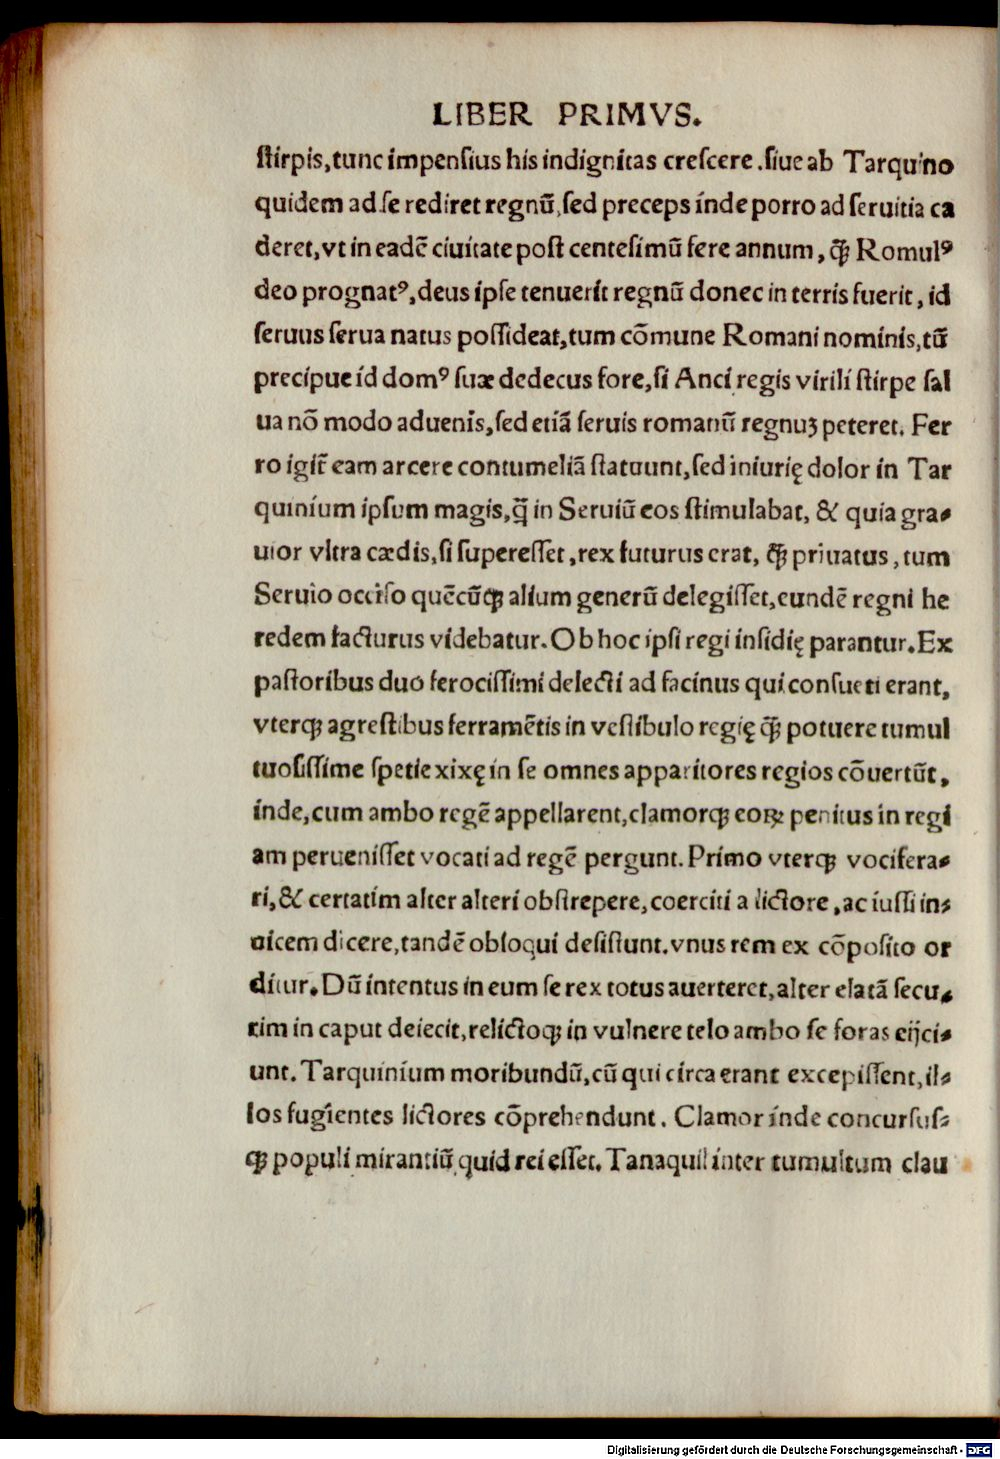 LIBER PRIMVS.
ſtirpis,tunc impenſius his indignitas creſcere .ſiue ab Tarquino
quidem ad ſe rediret regnū,ſed preceps inde porro ad ſeruitia ca
deret,vt in eadē ciuitate poſt centeſimū fere annum, q̄ꝫ Romulꝰ
deo prognatꝰ,deus ipſe tenuerit regnū donec in terris fuerit, id
ſeruus ſerua natus poſſideat,tum cōmune Romani nominis,tū
precipue id domꝰ ſuæ dedecus fore,ſi Anci regis virili ſtirpe ſal
ua nō modo aduenis,ſed etiā ſeruis romanū regnuꝫ peteret. Fer
ro igit̄ eam arcere contumeliā ſtatuunt,ſed iniurię dolor in Tar
quinium ipſum magis,q̄ in Seruiū eos ſtimulabat, & quia gra⸗
uior vltra cædis,ſi ſupereſſet ,rex futurus erat, q̄ꝫ priuatus, tum
Seruio occiſo quēcūqꝫ alium generū delegiſſet,eundē regni he
redem facturus videbatur. Ob hoc ipſi regi inſidię parantur. Ex
paſtoribus duo ferociſſimi delecti ad facinus qui conſueti erant,
vterqꝫ agreſtibus ferramētis in veſtibulo regię q̄ꝫ potuere tumul
tuoſiſſime ſpetie xixę in ſe omnes apparitores regios cōuertūt,
inde,cum ambo regē appellarent,clamorqꝫ eoꝝ penitus in regi
am perueniſſet vocati ad regē pergunt. Primo vterqꝫ vocifera⸗
ri,& certatim alter alteri obſtrepere,coerciti a lictore ,ac iuſſi in⸗
uicem dicere,tandē obloqui deſiſtunt.vnus rem ex cōpoſito or
ditur. Dū intentus in eum ſe rex totus auerteret,alter elatā ſecu⸗
rim in caput deiecit,relictoqꝫ in vulnere telo ambo ſe foras eijci⸗
unt. Tarquinium moribundū,cū qui circa erant excepiſſent,il⸗
los fugientes lictores cōprehendunt. Clamor inde concurſuſ⸗
qꝫ populi mirantiū quid rei eſſet. Tanaquil inter tumultum clau
Digitalisierung gefördert durch die Deutsche Forschungsgemeinschaft - DFG